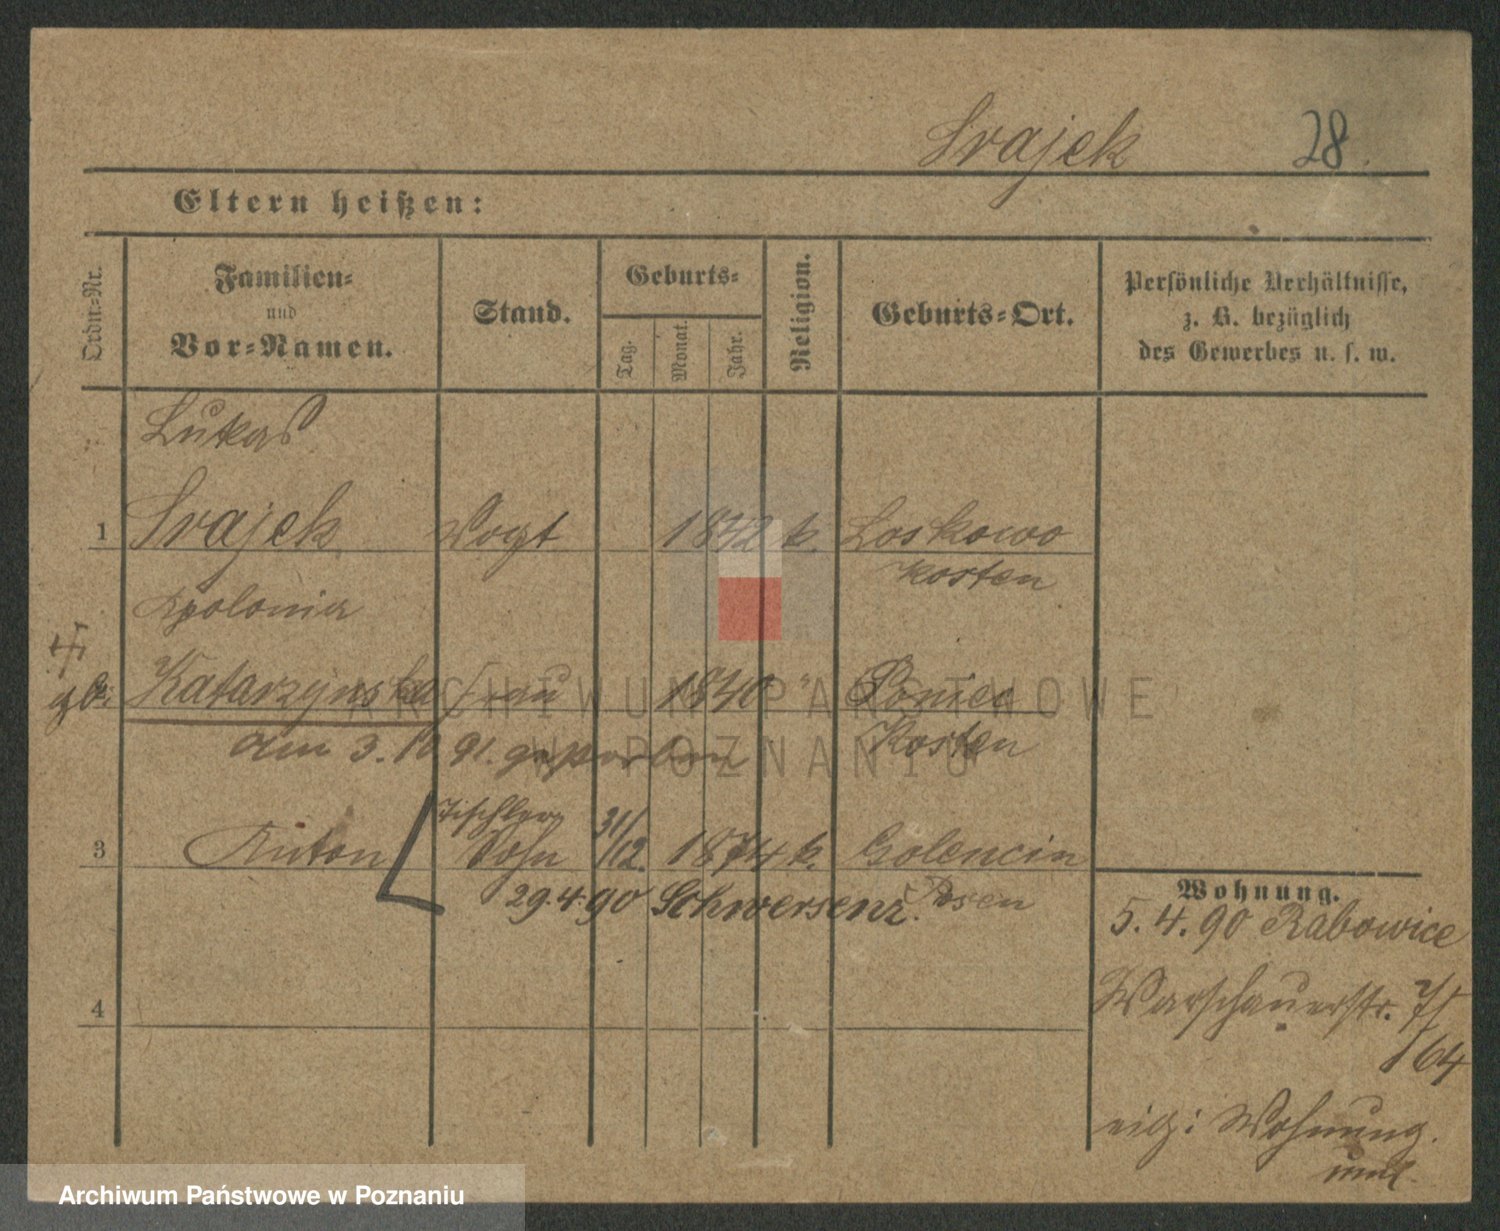 Srajek 28.
Eltern heißen:
Ordn.-Nr. Familien- und Vor-Namen. Stand. Geburts- Tag. Monat. Jahr. Religion. Geburts-Ort. Persönliche Verhältnisse, z. B. bezüglich des Gewerbes u. s. w.
Lukas
1 Srajek Vogt 1842 k. Loskowo
Kosten
Apolonia
geb. Katarzynska Frau 1840 " Poniec
Kosten
am 3. 10 91. gestorben
Tischler
3 Anton Sohn 31/12. 1874 k. Golencin
29.4.90 Schwersenz. Posen
4
Wohnung.
5. 4. 90 Rabowice
Warschauerstr. 7/
64
eig: Wohnung.
ARCHIWUM PAŃSTWOWE
W POZNANIU
Archiwum Państwowe w Poznaniu